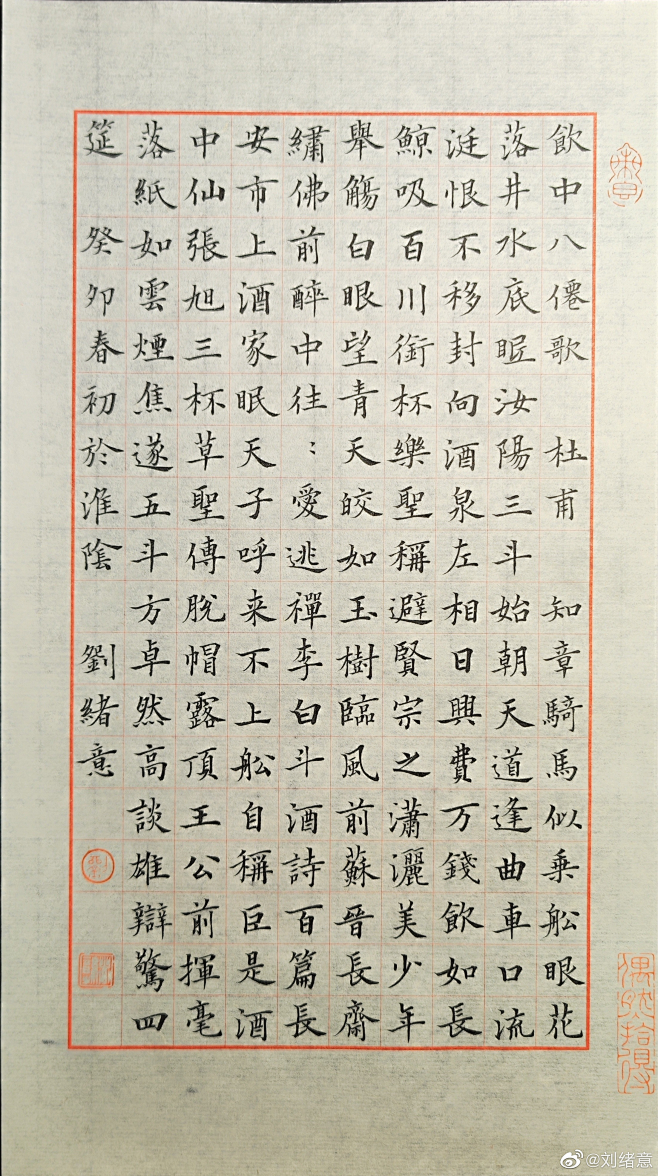 飲中八僊歌 杜甫 知章騎馬似乗舩眼花
落井水底眠汝陽三斗始朝天道逢曲車口流
涎恨不移封向酒泉左相日興費万錢飲如長
鯨吸百川銜杯樂聖稱避賢宗之瀟灑美少年
舉觴白眼望青天皎如玉樹臨風前蘇晉長齋
繡佛前醉中往〻愛逃禪李白斗酒詩百篇長
安市上酒家眠天子呼来不上舩自稱臣是酒
中仙張旭三杯草聖傳脫帽露頂王公前揮毫
落紙如雲煙焦遂五斗方卓然高談雄辯驚四
筵 癸卯春初於淮陰 劉緒意
劉
偶然拾得
@刘绪意